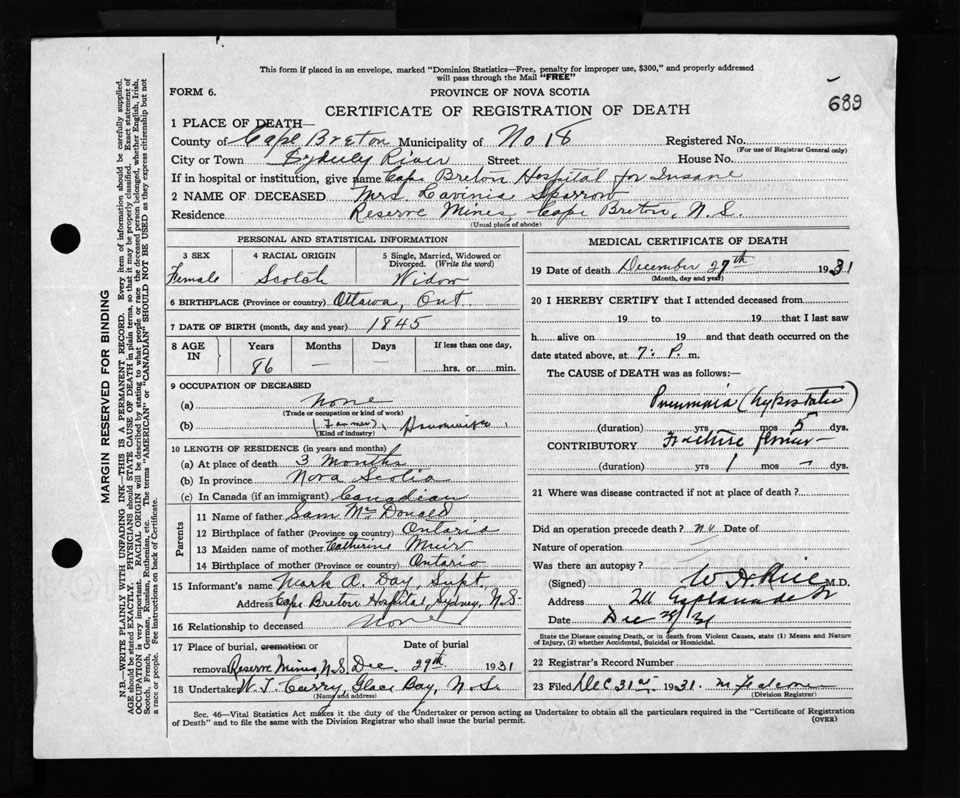 This form if placed in an envelope, marked "Dominion Statistics—Free, penalty for improper use, $300," and properly addressed
will pass through the Mail "FREE"
FORM 6.
PROVINCE OF NOVA SCOTIA
689
CERTIFICATE OF REGISTRATION OF DEATH
1 PLACE OF DEATH—
County of Cape Breton Municipality of No 18 Registered No.
(For use of Registrar General only)
City or Town River Street House No.
If in hospital or institution, give name Cape Breton Hospital for Insane
2 NAME OF DECEASED Mrs. Lavinia Sparrow
Residence Reserve Mines, Cape Breton, N.S.
(Usual place of abode)
PERSONAL AND STATISTICAL INFORMATION
3 SEX 4 RACIAL ORIGIN 5 Single, Married, Widowed or Divorced. (Write the word)
Female Scotch Widow
6 BIRTHPLACE (Province or country) Ottawa, Ont
7 DATE OF BIRTH (month, day and year) 1845
8 AGE IN Years Months Days If less than one day,
86 — hrs. or min.
9 OCCUPATION OF DECEASED
(a) None
(Trade or occupation or kind of work)
(b) (Former) Housewife
(Kind of industry)
10 LENGTH OF RESIDENCE (in years and months)
(a) At place of death 3 Months
(b) In province Nova Scotia
(c) In Canada (if an immigrant) Canadian
Parents
11 Name of father Sam McDonald
12 Birthplace of father (Province or country) Ontario
13 Maiden name of mother Catherine Muir
14 Birthplace of mother (Province or country) Ontario
15 Informant's name Mark A. Day, Supt.
Address Cape Breton Hospital, Sydney, N.S-
16 Relationship to deceased None
17 Place of burial, cremation or removal Reserve Mines, N.S. Date of burial Dec. 29th 1931
18 Undertaker W. J. Curry, Glace Bay, N.S.
(Name and address)
MEDICAL CERTIFICATE OF DEATH
19 Date of death December 27th 1931
(Month, day and year)
20 I HEREBY CERTIFY that I attended deceased from
19 to 19 that I last saw
h alive on 19 and that death occurred on the
date stated above, at 7: P. m.
The CAUSE of DEATH was as follows:—
Pneumonia (hypostatic)
(duration) yrs mos 5 dys.
CONTRIBUTORY Fracture femur —
(duration) yrs 1 mos - dys.
21 Where was disease contracted if not at place of death?
Did an operation precede death? no Date of
Nature of operation
Was there an autopsy?
(Signed) W H Rice M.D.
Address 211 Esplanade
Date Dec 29/31
State the Disease causing Death, or in death from Violent Causes, state (1) Means and Nature
of Injury, (2) whether Accidental, Suicidal or Homicidal.
22 Registrar's Record Number
23 Filed Dec 31st 1931.
(Division Registrar)
Sec. 46—Vital Statistics Act makes it the duty of the Undertaker or person acting as Undertaker to obtain all the particulars required in the "Certificate of Registration
of Death" and to file the same with the Division Registrar who shall issue the burial permit.
(OVER)
MARGIN RESERVED FOR BINDING
N.B.—WRITE PLAINLY WITH UNFADING INK—THIS IS A PERMANENT RECORD. Every item of information should be carefully supplied.
AGE should be stated EXACTLY. PHYSICIANS should STATE CAUSE OF DEATH in plain terms, so that it may be properly classified. Exact statement of
OCCUPATION is very important. RACIAL ORIGIN will be described by stating to what people or race the deceased person belonged, whether English, Irish,
Scotch, French, German, Russian, Ruthenian, etc. The terms "AMERICAN" or "CANADIAN" SHOULD NOT BE USED as they express citizenship but not
a race or people. See instructions on back of Certificate.